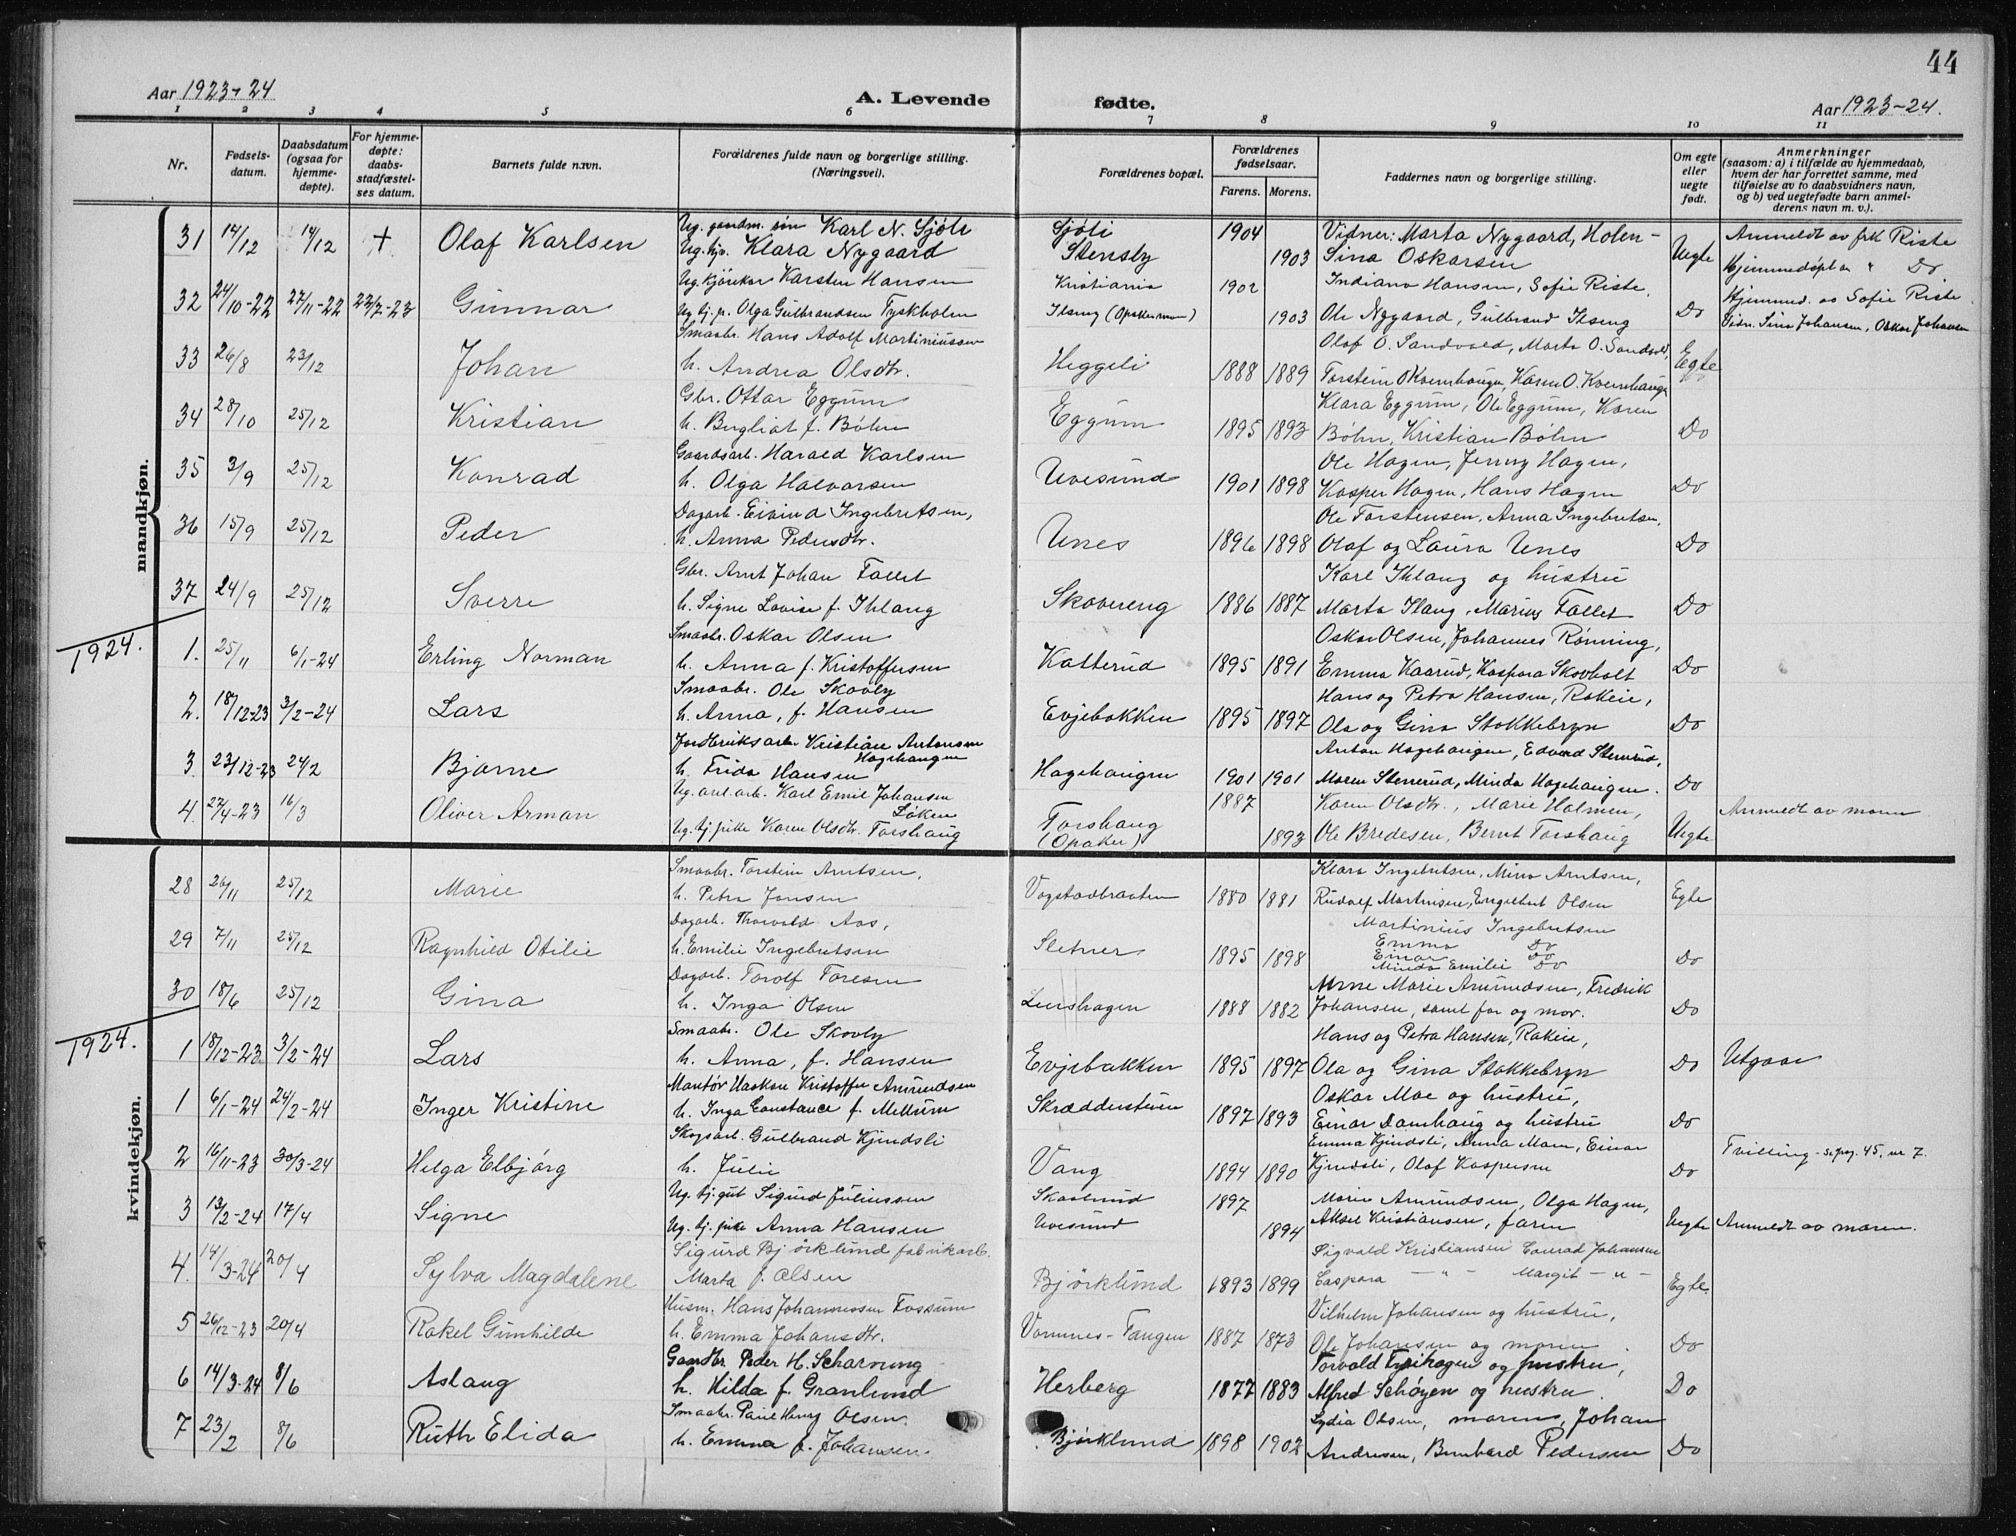 44
Aar 1923-24
A. Levende fødte.
Aar 1923-24.
1 2 3 4 5 6 7 8 9 10 11
Nr.
Fødsels-datum.
Daabsdatum (ogsaa for hjemme-døpte).
For hjemme-døpte: daabs-stadfæstel-ses datum.
Barnets fulde navn.
Forældrenes fulde navn og borgerlige stilling. (Næringsvei).
Forældrenes bopæl.
Forældrenes fødselsaar.
Farens. Morens.
Faddernes navn og borgerlige stilling.
Om egte eller uegte født.
Anmerkninger (saasom: a) i tilfælde av hjemmedaab, hvem der har forrettet samme, med tilføielse av to daabsvidners navn, og b) ved uegtefødte barn anmel-derens navn m. v.).
mandkjøn.
31 14/12 14/12 + Olaf Karlsen Ug. gaardm. søn Karl N. Sjøli Sjøli 1904 Vidner: Marta Nygaard, Holen- Uegte Anmeldt av frk Riste
Ug. tjp. Klara Nygaard Stensby 1903 Sina Oskarsen Hjemmedøpt av " Do
32 24/10-22 27/11-22 22/7-23 Gunnar Ug. kjørekar Karsten Hansen Kristiania 1902 Indiana Hansen, Sofie Riste, Do Hjemmed. av Sofie Riste
Ug. tj. p. Olga Gulbrandsen Tyskholen Ilseng (Opakermoen) 1903 Ole Nygaard, Gulbrand Ilseng Vidn. Sina Johansen, Oskar Johansen
33 26/8 23/12 Johan Smaabr. Hans Adolf Martiniussen Heggeli Olaf O. Sandvold, Marta O. Sandvold, Egte
h. Andrea Olsdtr. 1888 1889 Torstein O Kvernhaugen, Karen O. Kvernhaugen
34 28/10 25/12 Kristian Gbr. Ottar Eggum Eggum Klara Eggum, Ole Eggum, Karen
h. Bergliot f. Bøhn 1895 1893 Bøhn, Kristian Bøhn Do
35 3/9 25/12 Konrad Gaardsarb. Harald Karlsen Uvesund Ole Hagen, Jenny Hagen,
h. Olga Halvorsen 1901 1898 Kasper Hagen, Hans Hagen Do
36 15/9 25/12 Peder Dagarb. Eivind Ingebretsen, Unes Ole Torstensen, Anna Ingebretsen,
h. Anna Pedersdtr. 1896 1898 Olaf og Laura Unes Do
37 24/9 25/12 Sverre Gbr. Arnt Johan Fallet Skovereng Karl Ihlang og hustru
h. Signe Lovise f. Ihlang 1886 1887 Marta Ilang, Marius Fallet Do
1924.
1. 25/11 6/1-24 Erling Norman Smaabr. Oskar Olsen Katterud Oskar Olsen, Johannes Rønning,
h. Anna f. Kristoffersen 1895 1891 Emma Kaarud, Kaspara Skovholt Do
2. 18/12-23 3/2-24 Lars Smaabr. Ole Skovly Evjebakken Hans og Petra Hansen, Rakeie,
h. Anna, f. Hansen 1895 1897 Ola og Gina Stokkebryn Do
3. 23/12-23 24/2 Bjarne Jordbruksarb. Kristian Antonsen Hagehaugen Anton Hagehaugen, Edvard Stenerud,
h. Frida Hansen Hagehaugen 1901 1901 Maren Stenerud, Minda Hagehaugen. Do
4. 27/4-23 16/3 Oliver Arman Ug. anl. arb. Karl Emil Johansen Løken 1887 Karen Olsdtr., Marie Holmen, Anmeldt av moren
Ug. tj. pike Karen Olsdtr. Torshaug Torshaug (Opaker) 1893 Ole Bredesen, Bernt Torshaug Uegte
kvindekjøn.
28 26/11 25/12 Marie Smaabr. Torstein Arntsen, Vagstadbraaten Klara Ingebretsen, Mina Arntsen,
h. Petra Jansen 1880 1881 Rudolf Martinsen, Engelbert Olsen Egte
29 7/11 25/12 Ragnhild Otilie Dagarb. Thorvald Aas, Sletner Martinius Ingebretsen
h. Emilie Ingebretsen 1895 1898 Emma Do Do
Einar Do
Minda Emilie Do
30 18/6 25/12 Gina Dagarb. Torolf Toresen Lenshagen Anne Marie Amundsen, Fredrik
h. Inga Olsen 1888 1882 Johansen, samt far og mor. Do
1924.
1 18/12-23 3/2-24 Lars Smaabr. Ole Skovly Evjebakken Hans og Petra Hansen, Rakeie, Utgaar
h. Anna, f. Hansen 1895 1897 Ola og Gina Stokkebryn Do
1 6/1-24 24/2-24 Inger Kristine Montør Haakon Kristoffer Amundsen Skrædderstuen Oskar Moe og hustru,
h. Inga Constance f. Mellum 1897 1893 Einar Damhaug og hustru Do
2 16/11-23 30/3-24 Helga Elbjørg Skogsarb. Gulbrand Kjindsli Vang Emma Kjindsli, Anna Moen, Einar Tvilling - se pag. 45, nr 7.
h. Julie 1894 1890 Kjindsli, Olaf Kaspersen Do
3 13/2-24 17/4 Signe Ug. tj. gut Sigurd Juliussen Skaslund 1897 Marie Amundsen, Olga Hagen,
Ug. tj. pike Anna Hansen Uvesund 1894 Aksel Kristiansen, faren Uegte Anmeldt av moren.
4. 14/3-24 20/4 Sylva Magdalene Sigurd Bjørklund fabrikarb. Bjørklund Sigvald Kristiansen Conrad Johansen
Marta f. Olsen 1893 1899 Caspara - " - Margit - " - Egte
5 26/12-23 20/4 Rakel Gunhilde Husm. Hans Johannessen Fossum Vormnes-Tangen Vilhelm Johansen og hustru,
h. Emma Johansdtr. 1887 1873 Ole Johansen og moren. Do
6 14/3-24 8/6 Aslaug Gaardbr. Peder H. Scharnung Herberg Torvald Fyrihagen og hustru,
h. Hilda f. Granlund 1877 1883 Alfred Schøyen og hustru. Do
7 23/2 8/6 Ruth Elida Smaabr. Paul Henry Olsen Bjørklund Lydia Olsen, moren, Johan
h. Emma f. Johansen. 1898 1902 Andresen, Bernhard Pedersen Do